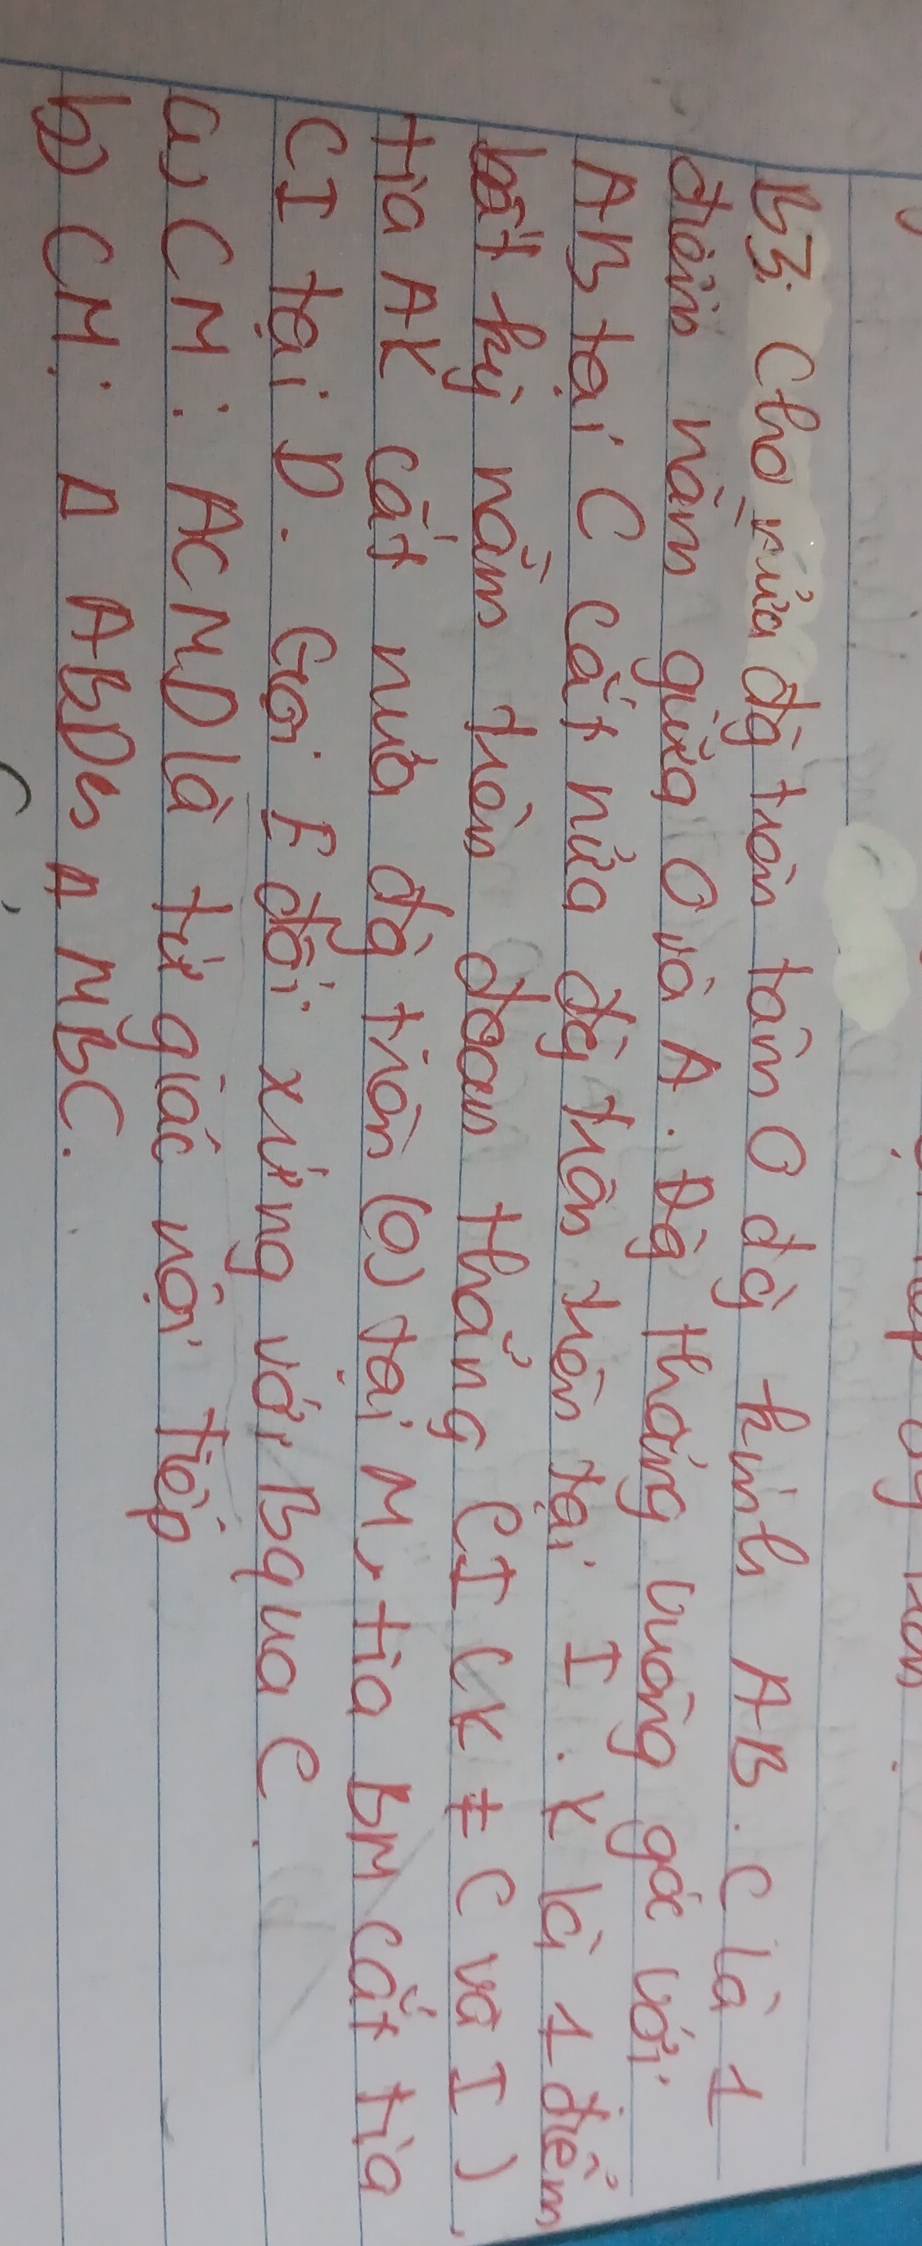 B3: Cho nửa đg tròn tâm O đg kính AB. C là 1
điểm nằm giữa O và A. Đg thẳng vuông góc với
AB tại C cắt nửa đg tròn trên tại I. K là 1 điểm
bất kỳ nằm trên đoạn thẳng CI (K ≠ C và I),
tia AK cắt nửa đg tròn (O) tại M, tia BM cắt tia
CI tại D. Gọi E đối xứng với B qua C.
a) CM: ACMD là tứ giác nội tiếp
b) CM: Δ ABD ∽ Δ MBC.